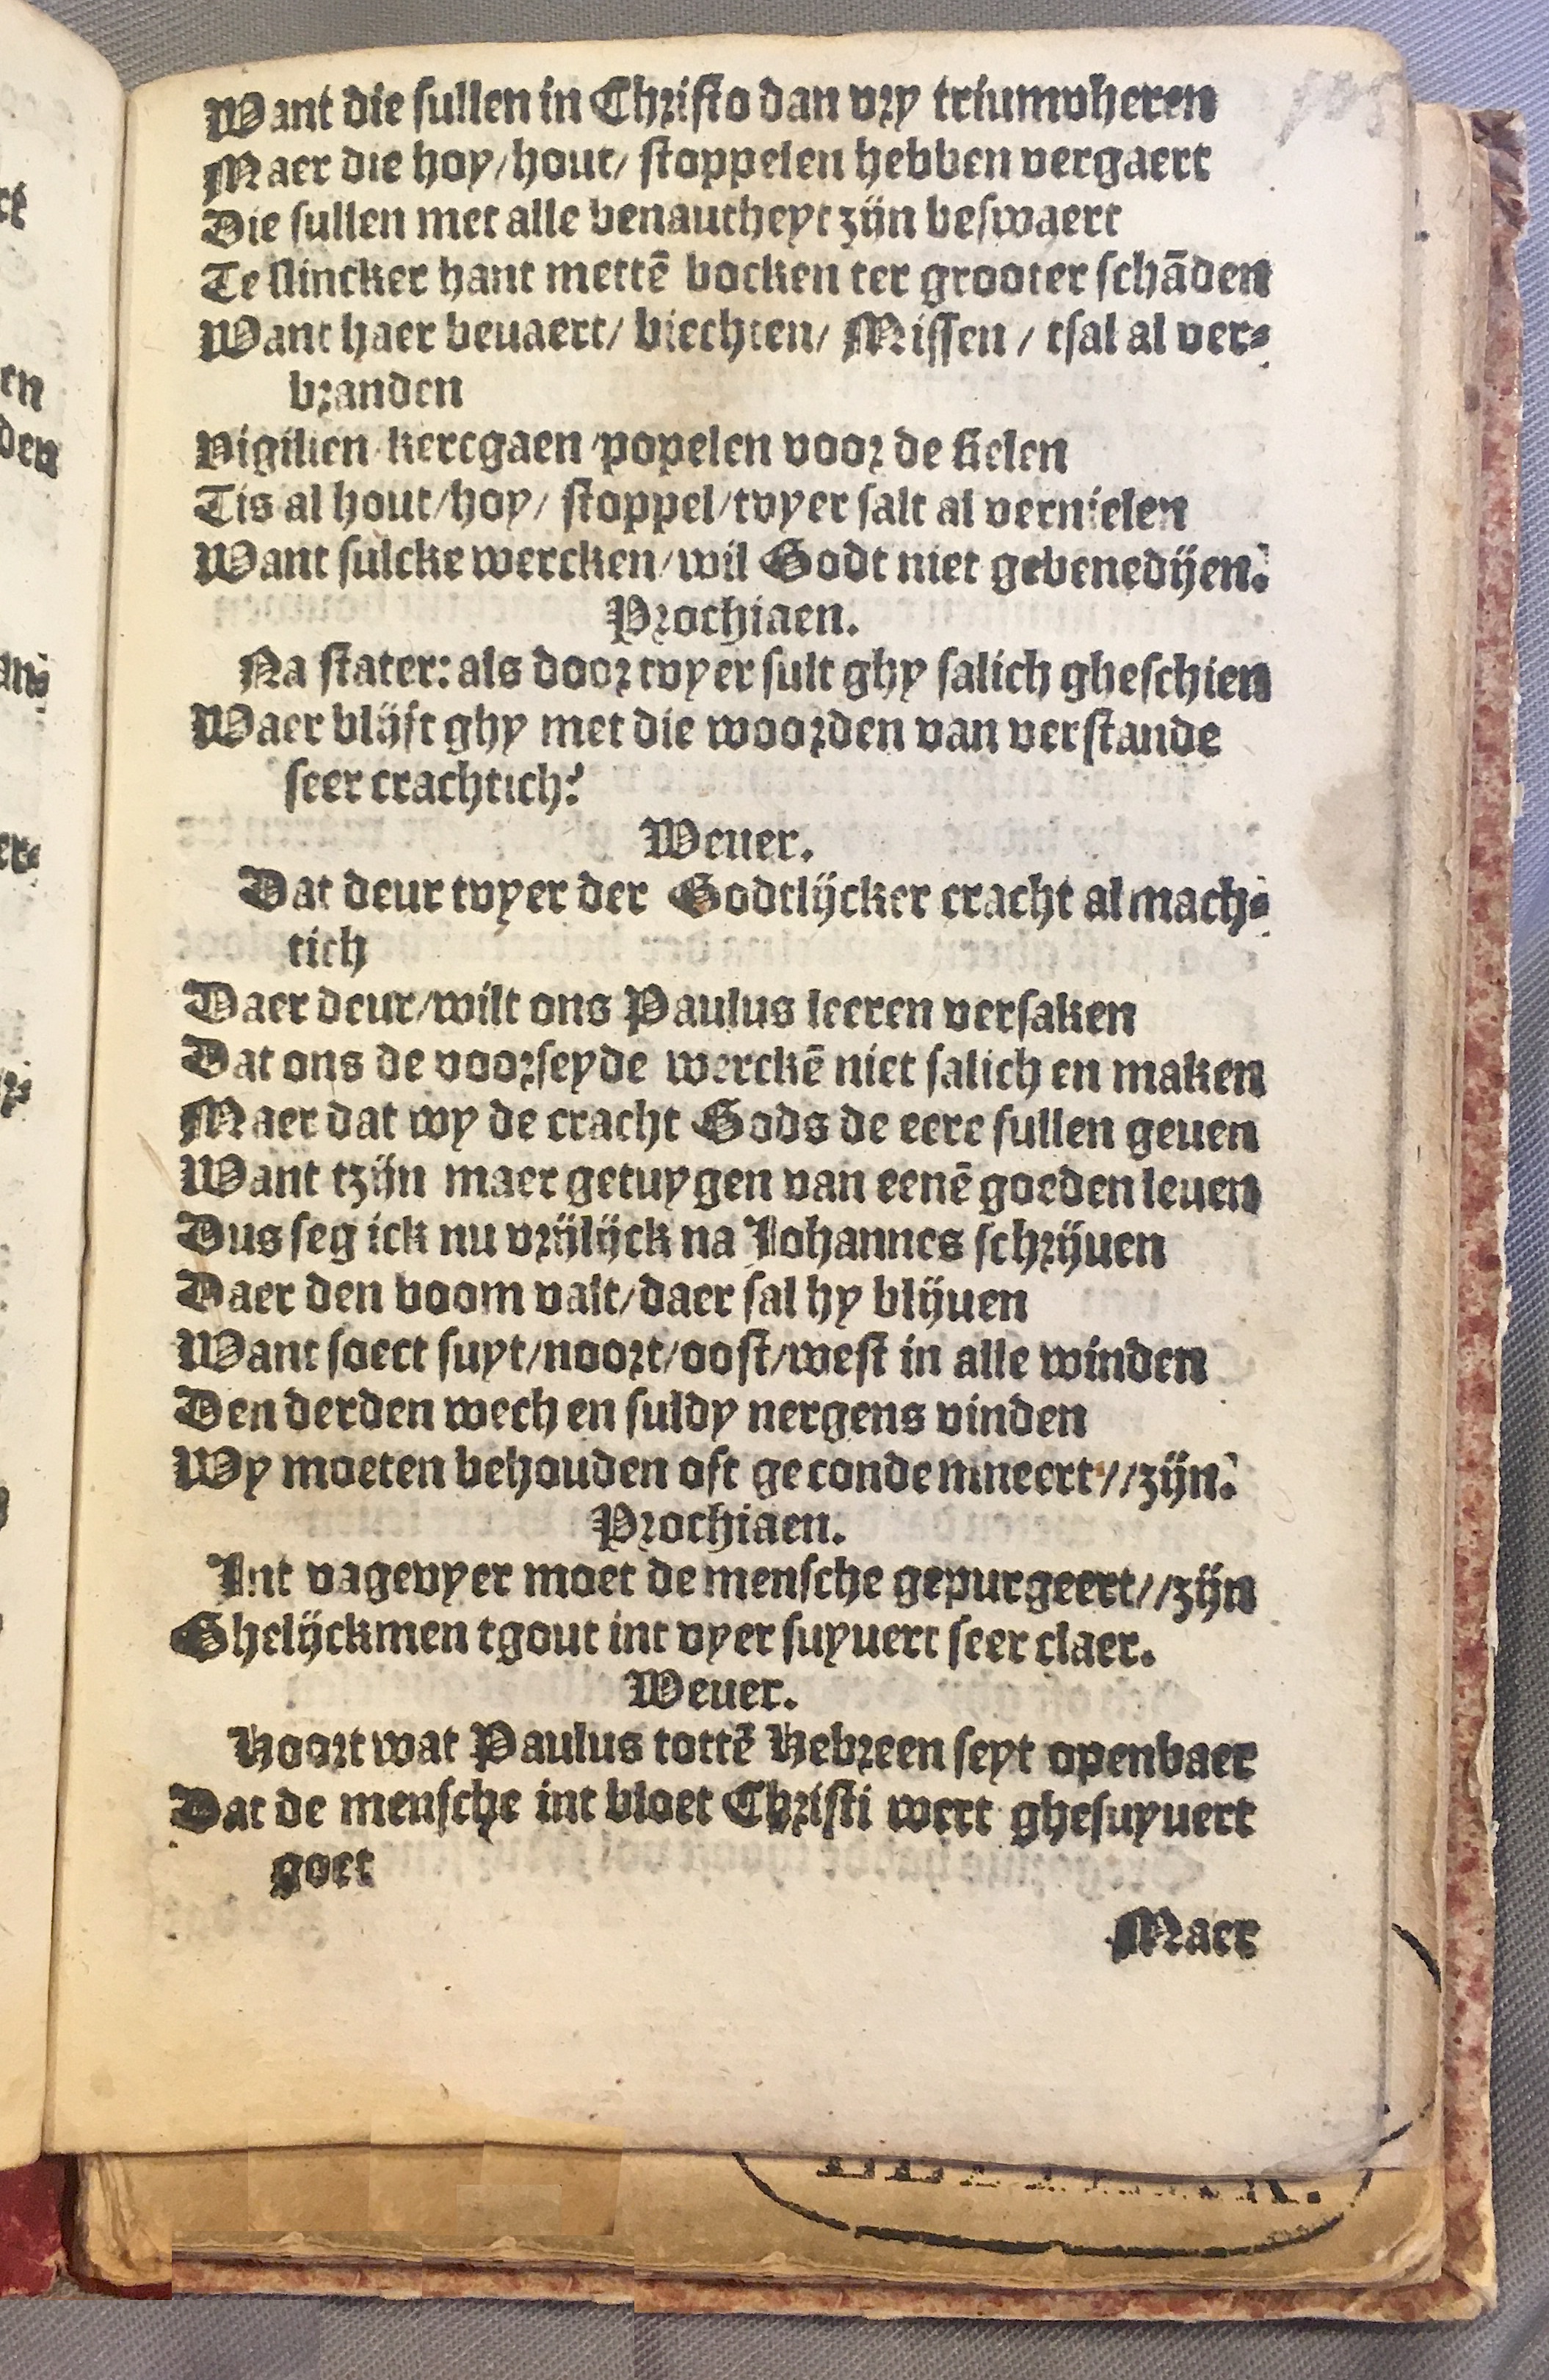 Want die sullen in Christo dan vry triumpheren
Maer die hoy/hout/ stoppelen hebben vergaert
Die sullen met alle benautheyt zijn beswaert
Te slincker hant mettē bocken ter grooter schāden
Want haer beuaert/ biechten/ Missen / tsal al ver-
branden
Vigilien kercgaen popelen voor de sielen
Tis al hout/hoy/ stoppel/tvyer salt al vernielen
Want sulcke wercken/wil Godt niet gebenedijen.
Prochiaen.
Na stater: als door tvyer sult ghy salich gheschien
Waer blijft ghy met die woorden van verstande
seer crachtich?
Weuer.
Dat deur tvyer der Godtlijcker cracht almach-
tich
Daer deur/wilt ons Paulus leeren versaken
Dat ons de voorseyde werckē niet salich en maken
Maer dat wy de cracht Gods de eere sullen geuen
Want tzijn maer getuygen van eenē goeden leuen
Dus seg ick nu vrijlijck na Johannes schrijuen
Daer den boom valt/daer sal hy blijuen
Want soect suyt/noort/oost/west in alle winden
Den derden wech en suldy nergens vinden
Wy moeten behouden oft gecondemneert//zijn.
Prochiaen.
Int vagevyer moet de mensche gepurgeert//zijn
Ghelijckmen tgout int vyer suyuert seer claer.
Weuer.
Hoort wat Paulus tottē Hebreen seyt openbaer
Dat de mensche int bloet Christi wert ghesuyuert
goet
Maer